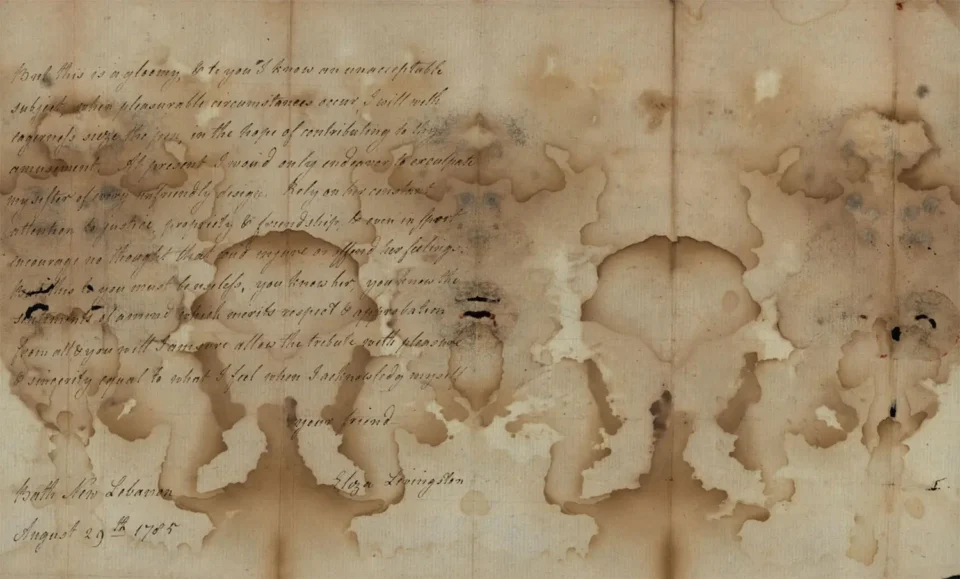 But this is a gloomy, & to you I know an unacceptable
subject, when pleasurable circumstances occur I will with
eagerness seize the pen, in the hope of contributing to thy
amusement. At present I would only endeavor to exculpate
my sister of every unfriendly design. Rely on her constant
attention to justice, propriety & friendship, & even in sport
encourage no thought that could injure or offend her feelings.
But this to you must be useless, you know her you know the
sentiments of a mind which merits respect & approbation
from all & you will I am sure allow the tribute with pleasure
& sincerity equal to what I feel when I acknowledg myself
your friend
Eliza Livingston
Bath New Lebanon
August 29th 1785